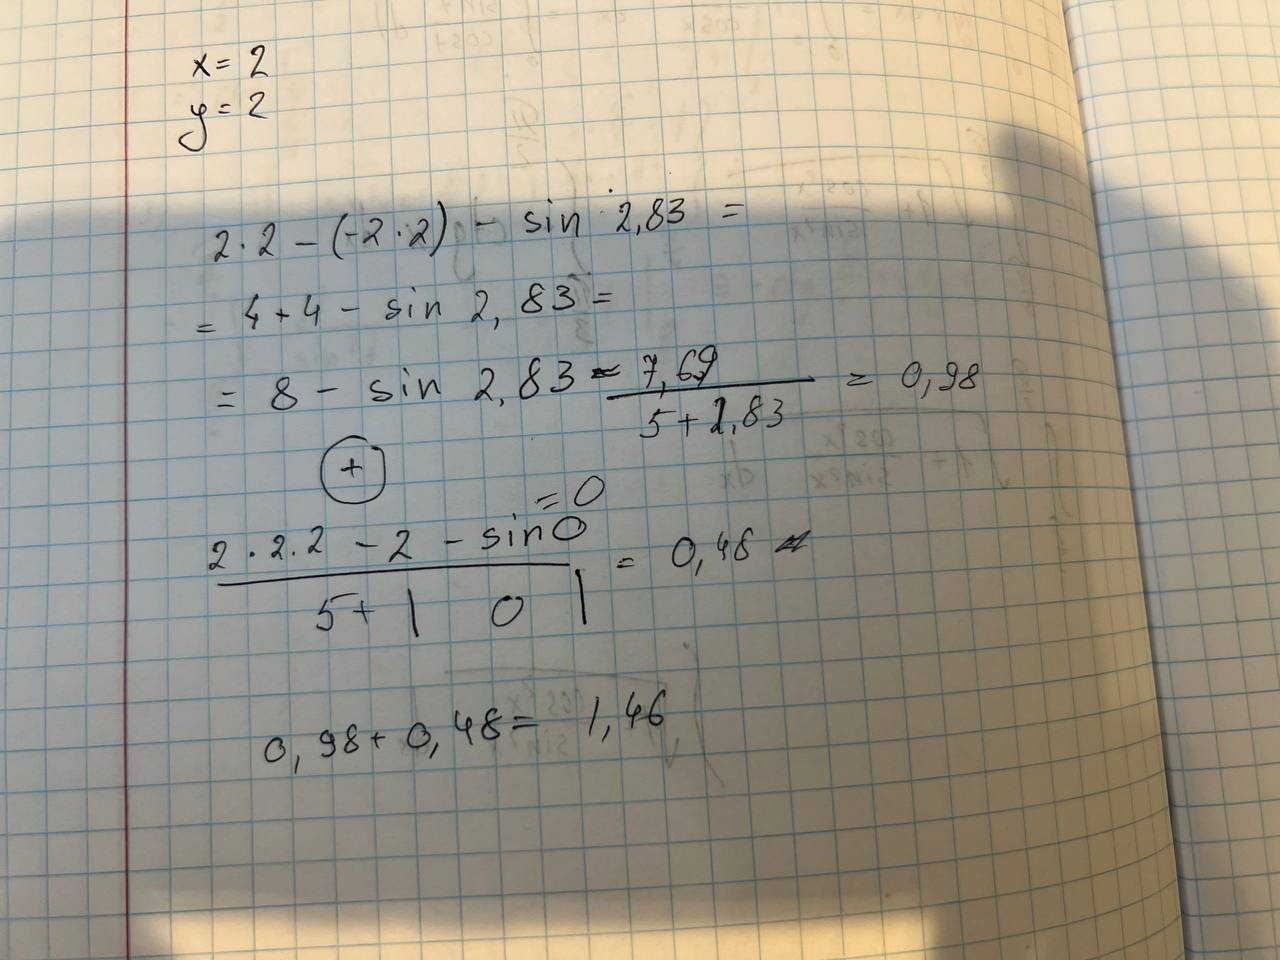 x = 2
y = 2
2 · 2 − (-2 · 2) − sin 2,83 =
= 4 + 4 − sin 2,83 =
= 8 − sin 2,83 = 7,69 / 5 + 2,83 = 0,98
+
= 0
2 · 2 · 2 − 2 − sin 0 = 0,48
5 + | 0 |
0,98 + 0,48 = 1,46